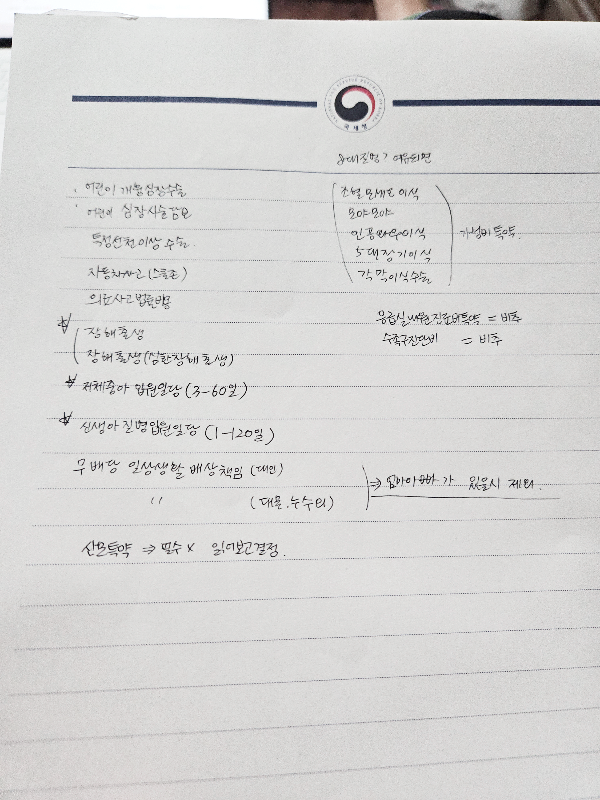 국세청
8대질병? 여유되면
어린이 개흉심장수술
어린이 심장시술담보
특정선천이상 수술.
자동차사고(스쿨존)
의료사고법률비용
장해출생
장해출생(심한장해출생)
저체중아 입원일당 (3-60일)
신생아 질병입원일당 (1-120일)
무배당 일상생활 배상책임 (대인)
〃 (대물.누수외)
⇒ 엄마아빠가 있을시 제외.
산모특약 ⇒ 필수 x 읽어보고결정.
조혈모세포이식
모야모야
인공와우이식
5대장기이식
각막이식수술
가성비특약.
응급실내원진료비특약 = 비추
수족구진단비 = 비추